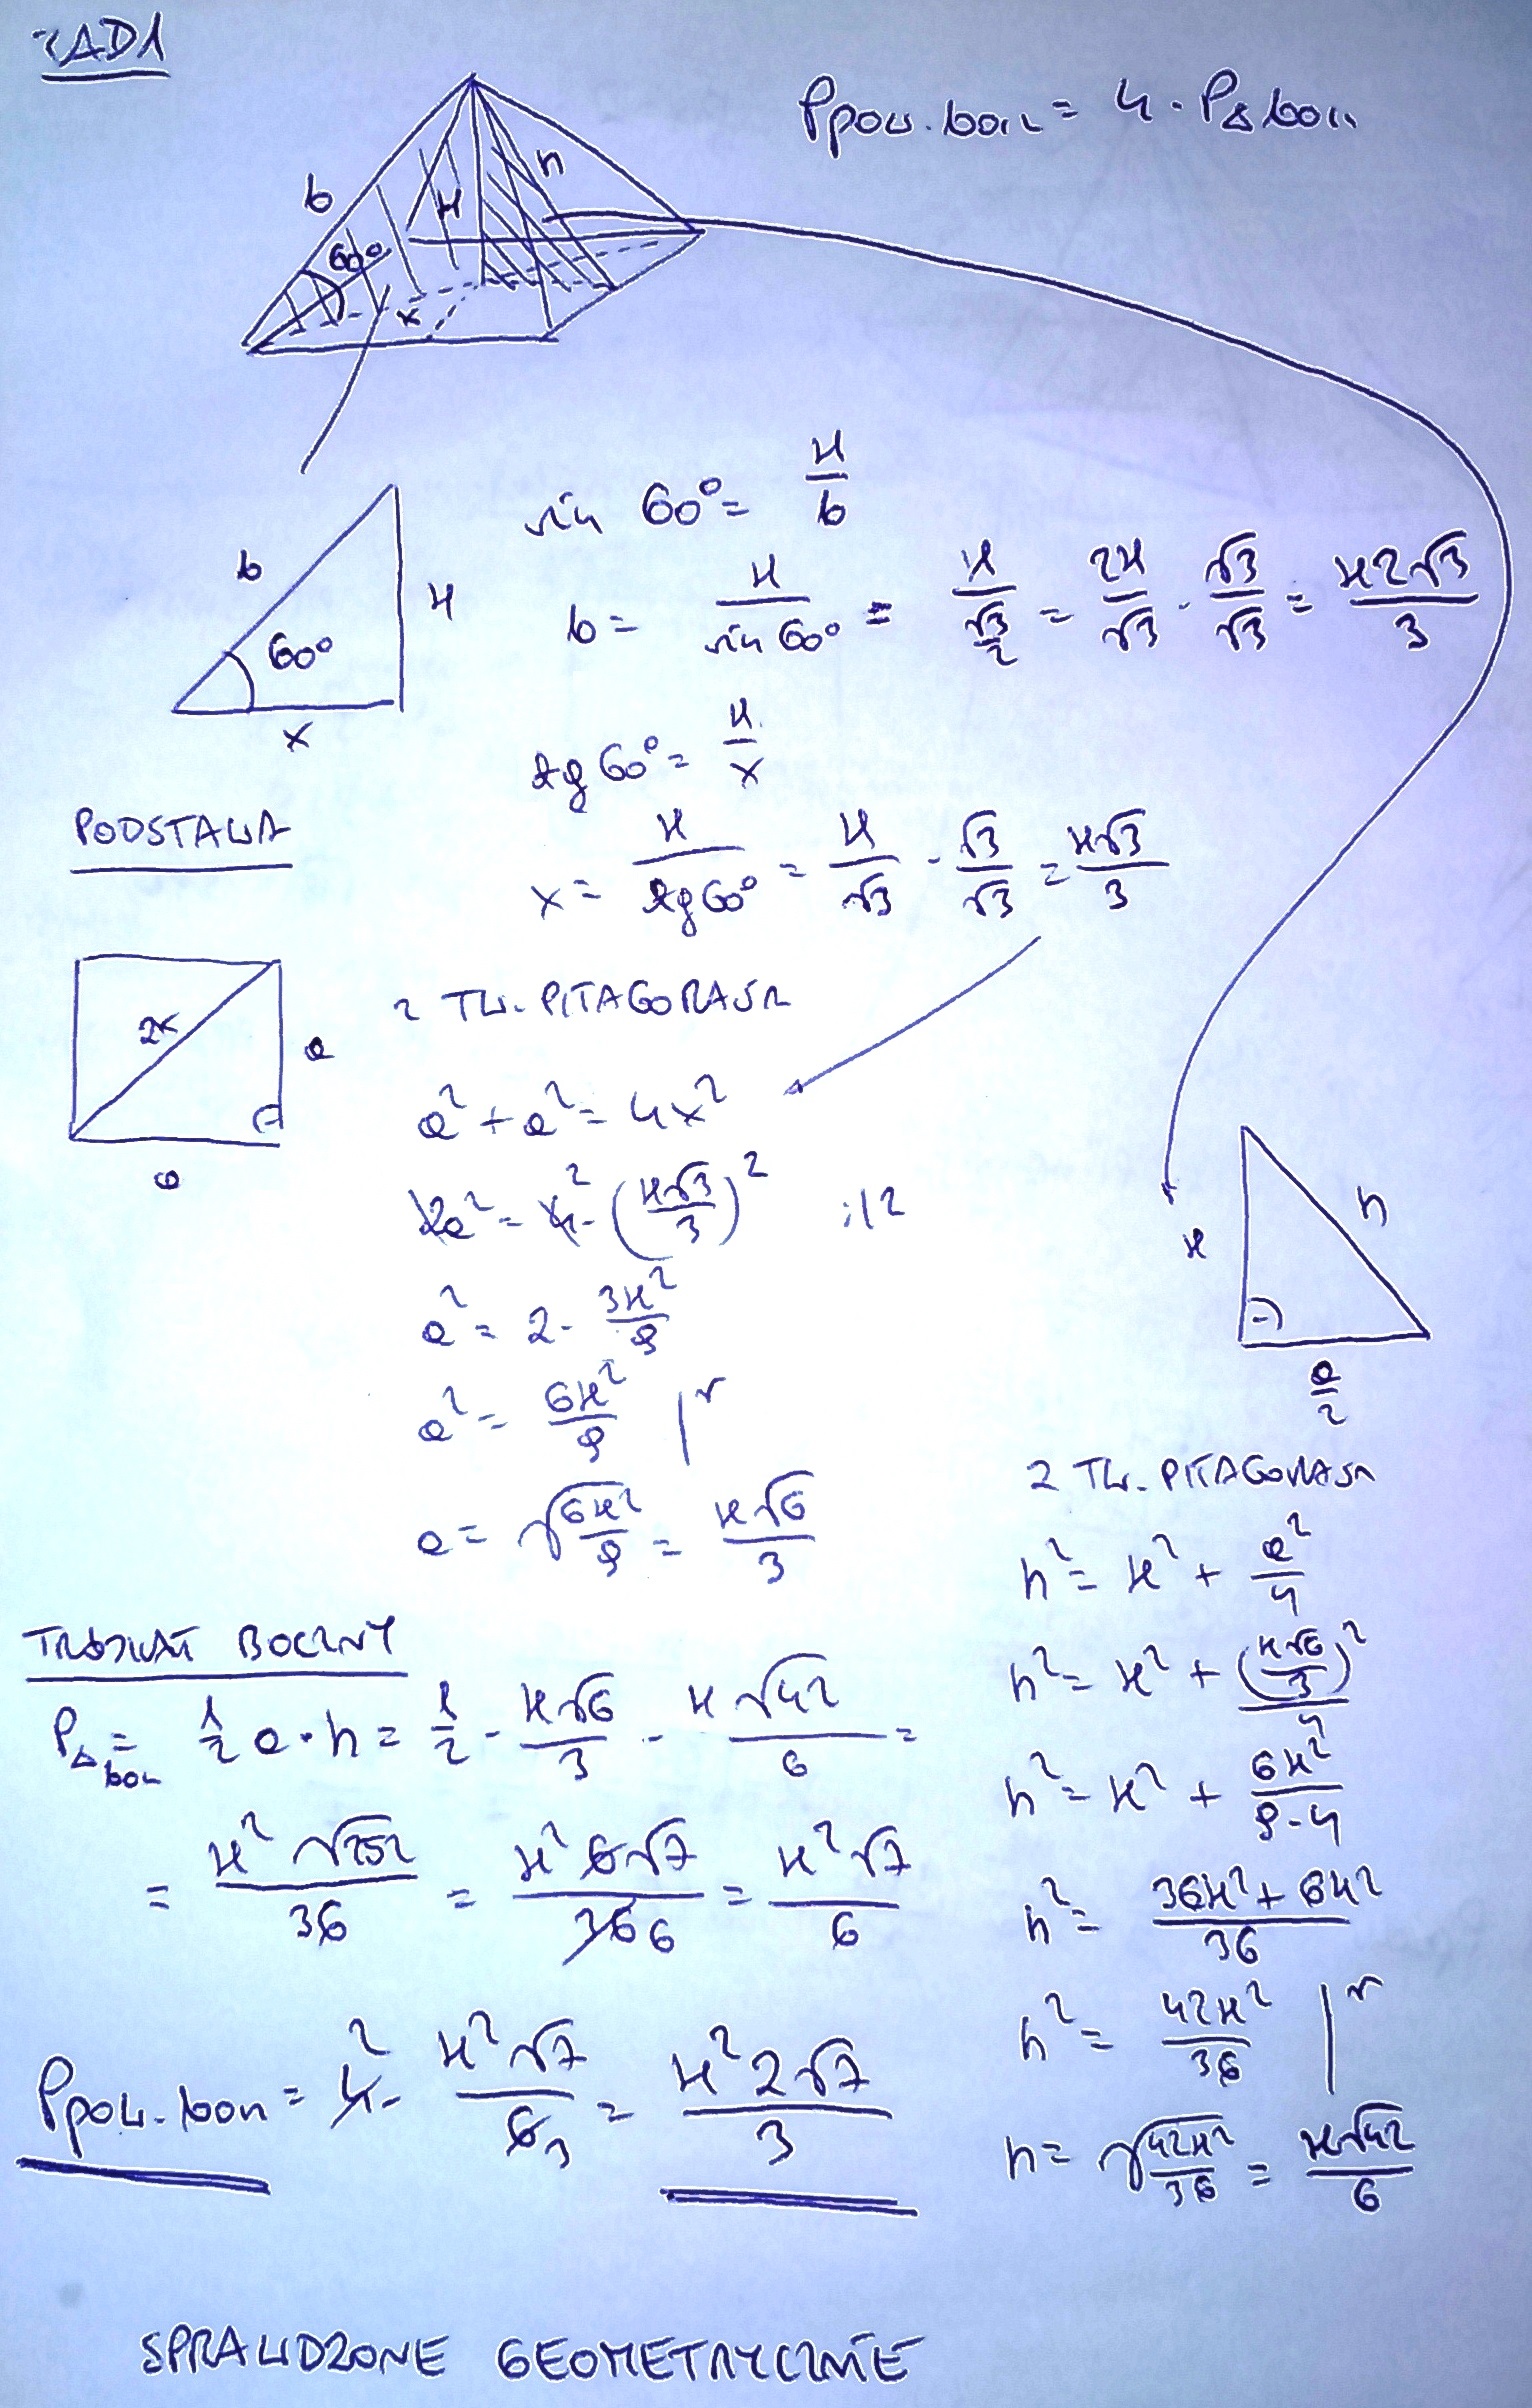 ZAD1
Ppow. bocz = 4 · PΔ bocz
b
H
h
60°
x
sin 60° = H/b
b
H
60°
x
b = H/sin 60° = H/(√3/2) = 2H/√3 · √3/√3 = H2√3/3
tg 60° = H/x
x = H/tg 60° = H/√3 · √3/√3 = H√3/3
PODSTAWA
2x
a
a
z TW. PITAGORASA
a² + a² = 4x²
2a² = 4 · (H√3/3)² :/2
a² = 2 · 3H²/9
a² = 6H²/9 |√
a = √(6H²/9) = H√6/3
H
h
a/2
z TW. PITAGORASA
h² = H² + a²/4
h² = H² + (H√6/3)²/4
h² = H² + 6H²/(9·4)
h² = (36H² + 6H²)/36
h² = 42H²/36 |√
h = √(42H²/36) = H√42/6
TRÓJKĄT BOCZNY
PΔ bocz = 1/2 a · h = 1/2 · H√6/3 · H√42/6 =
= H²√252/36 = H²6√7/36 6 = H²√7/6
Ppow. bocz = 4 2 · H²√7/6 3 = H²2√7/3
SPRAWDZONE GEOMETRYCZNIE